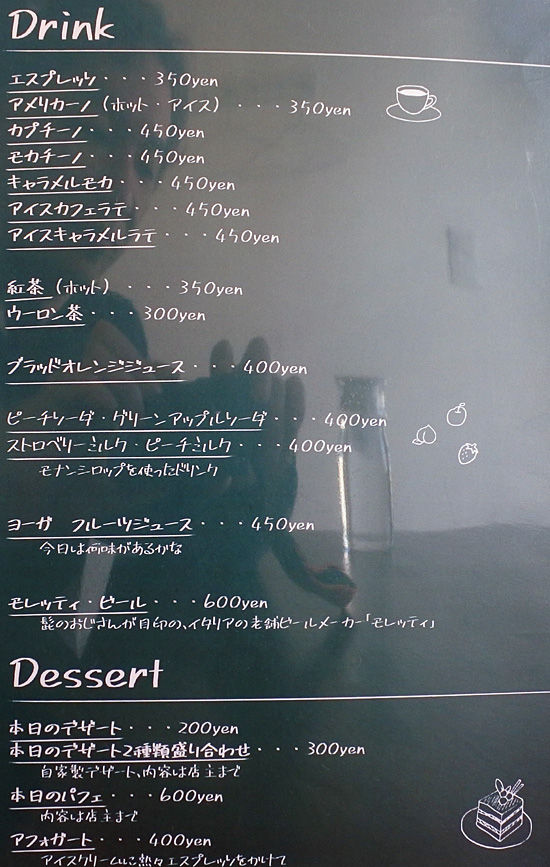 Drink
エスプレッソ・・・350yen
アメリカーノ（ホット・アイス）・・・350yen
カプチーノ・・・450yen
モカチーノ・・・450yen
キャラメルモカ・・・450yen
アイスカフェラテ・・・450yen
アイスキャラメルラテ・・・450yen
紅茶（ホット）・・・350yen
ウーロン茶・・・300yen
ブラッドオレンジジュース・・・400yen
ピーチソーダ・グリーンアップルソーダ・・・400yen
ストロベリーミルク・ピーチミルク・・・400yen
モナンシロップを使ったドリンク
ヨーガ フルーツジュース・・・450yen
今日は何味があるかな
モレッティ・ビール・・・600yen
髭のおじさんが目印の、イタリアの老舗ビールメーカー「モレッティ」
Dessert
本日のデザート・・・200yen
本日のデザート2種類盛り合わせ・・・300yen
自家製デザート、内容は店主まで
本日のパフェ・・・600yen
内容は店主まで
アフォガート・・・400yen
アイスクリームに熱々エスプレッソをかけて